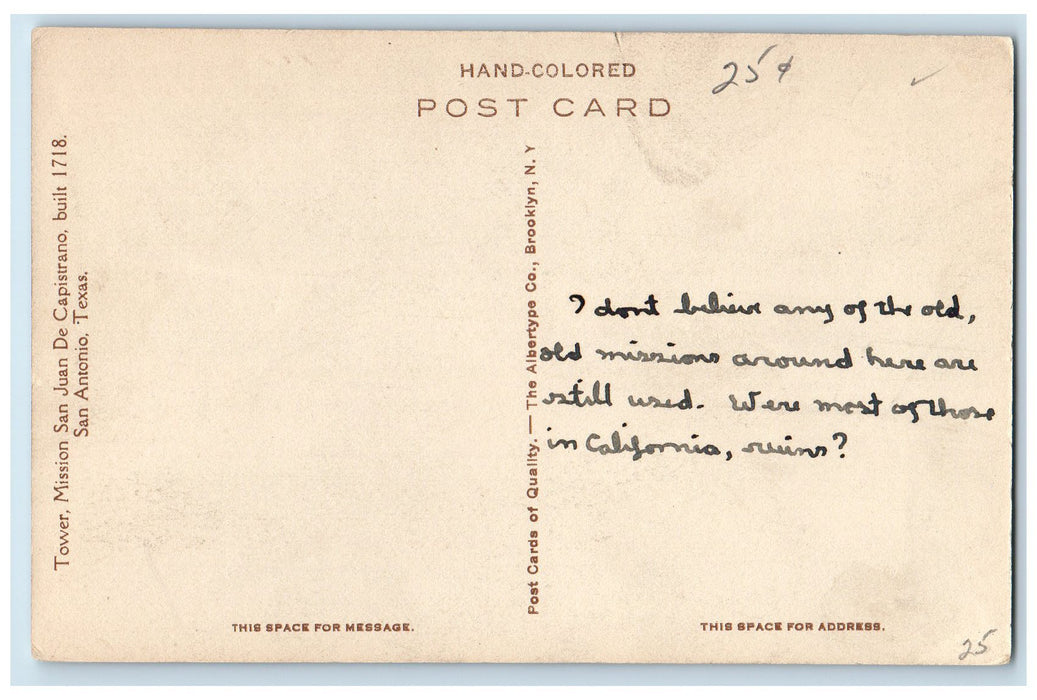 HAND-COLORED
POST CARD
25¢
Tower, Mission San Juan De Capistrano, built 1718.
San Antonio, Texas.
Post Cards of Quality. — The Albertype Co., Brooklyn, N. Y
I dont believe any of the old,
old missions around here are
still used. Were most of those
in California, ruins?
THIS SPACE FOR MESSAGE.
THIS SPACE FOR ADDRESS.
25